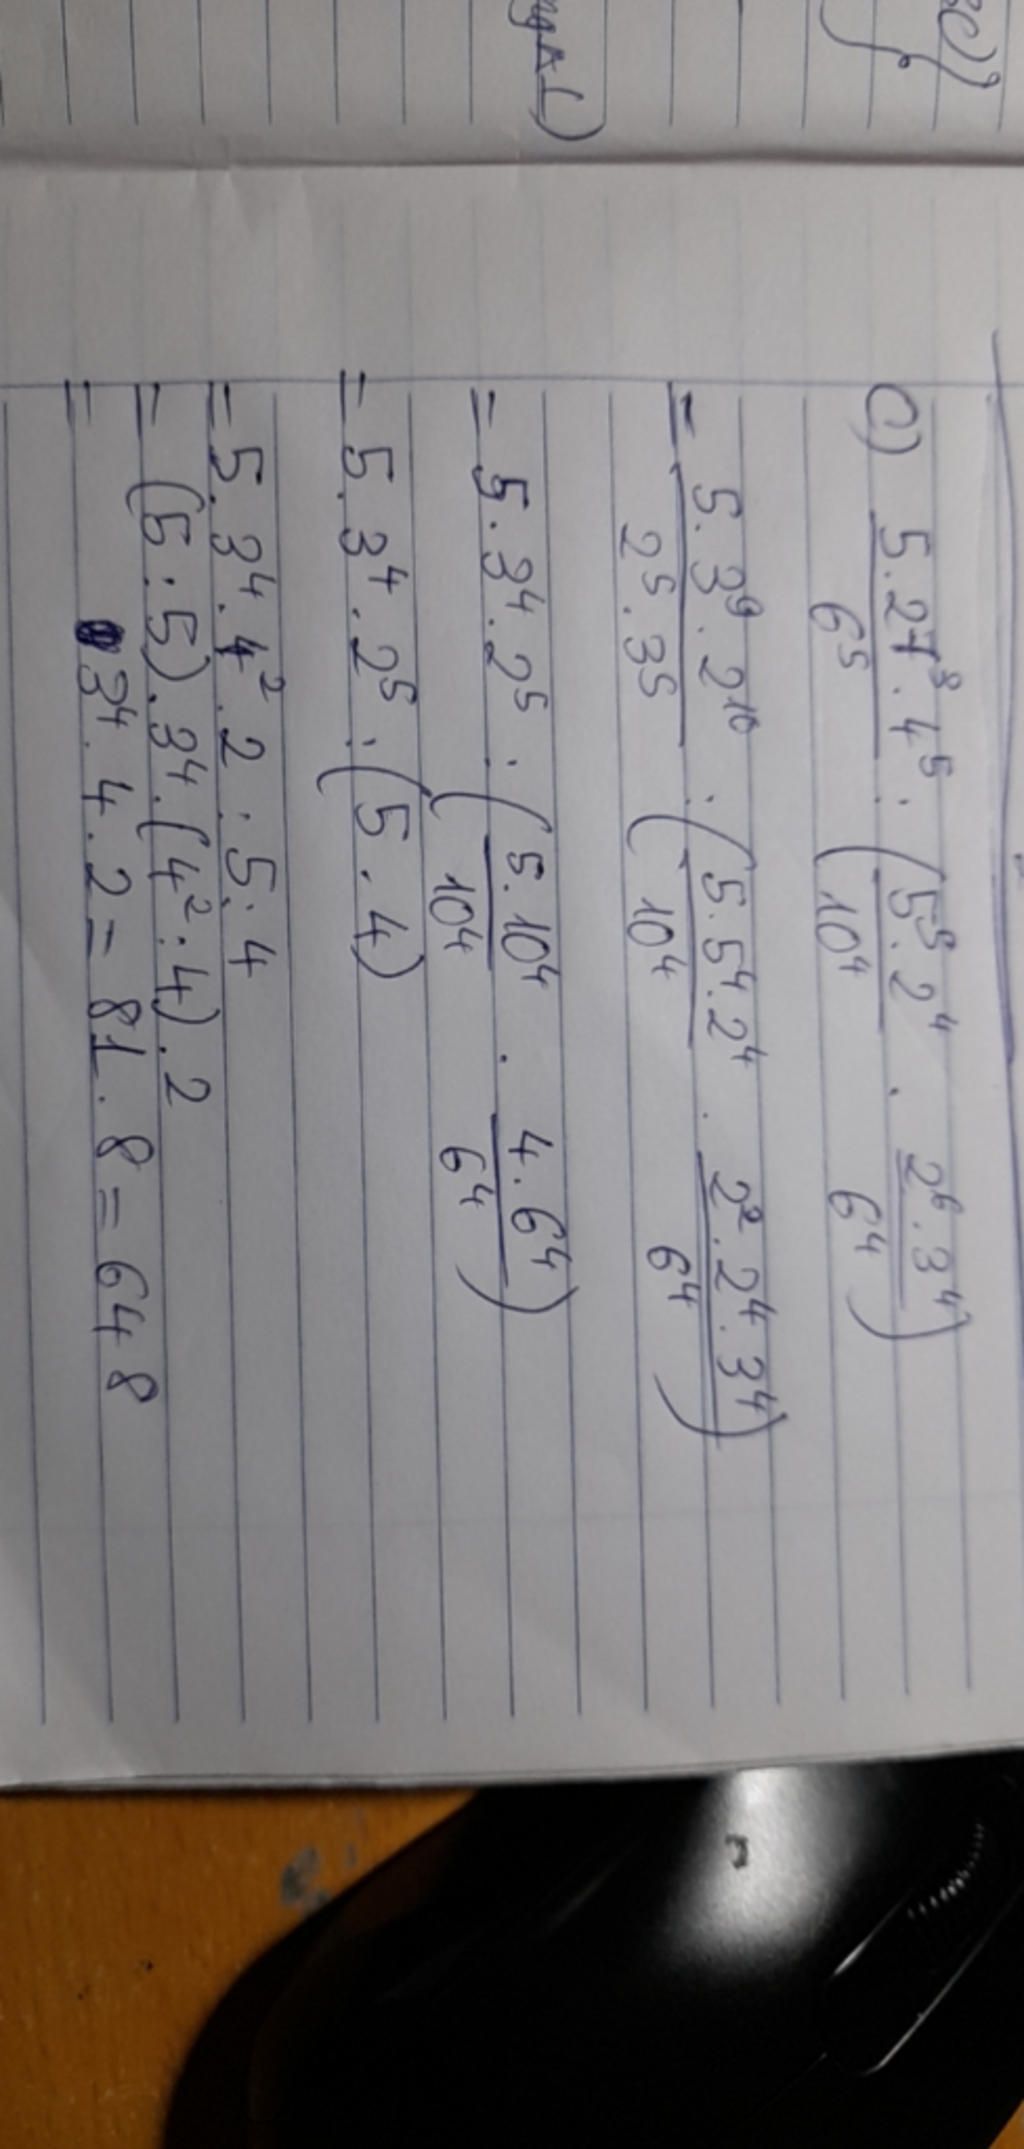 c) 5.27³.4⁵ / 6⁵ : (5⁵.2⁴ / 10⁴ . 2⁶.3⁴ / 6⁴)
= 5.3⁹.2¹⁰ / 2⁵.3⁵ : (5.5⁴.2⁴ / 10⁴ . 2².2⁴.3⁴ / 6⁴)
= 5.3⁴.2⁵ : (5.10⁴ / 10⁴ . 4.6⁴ / 6⁴)
= 5.3⁴.2⁵ : (5.4)
= 5.3⁴.4².2 : 5:4
= (5:5).3⁴.(4²:4).2
= 3⁴.4.2 = 81.8 = 648